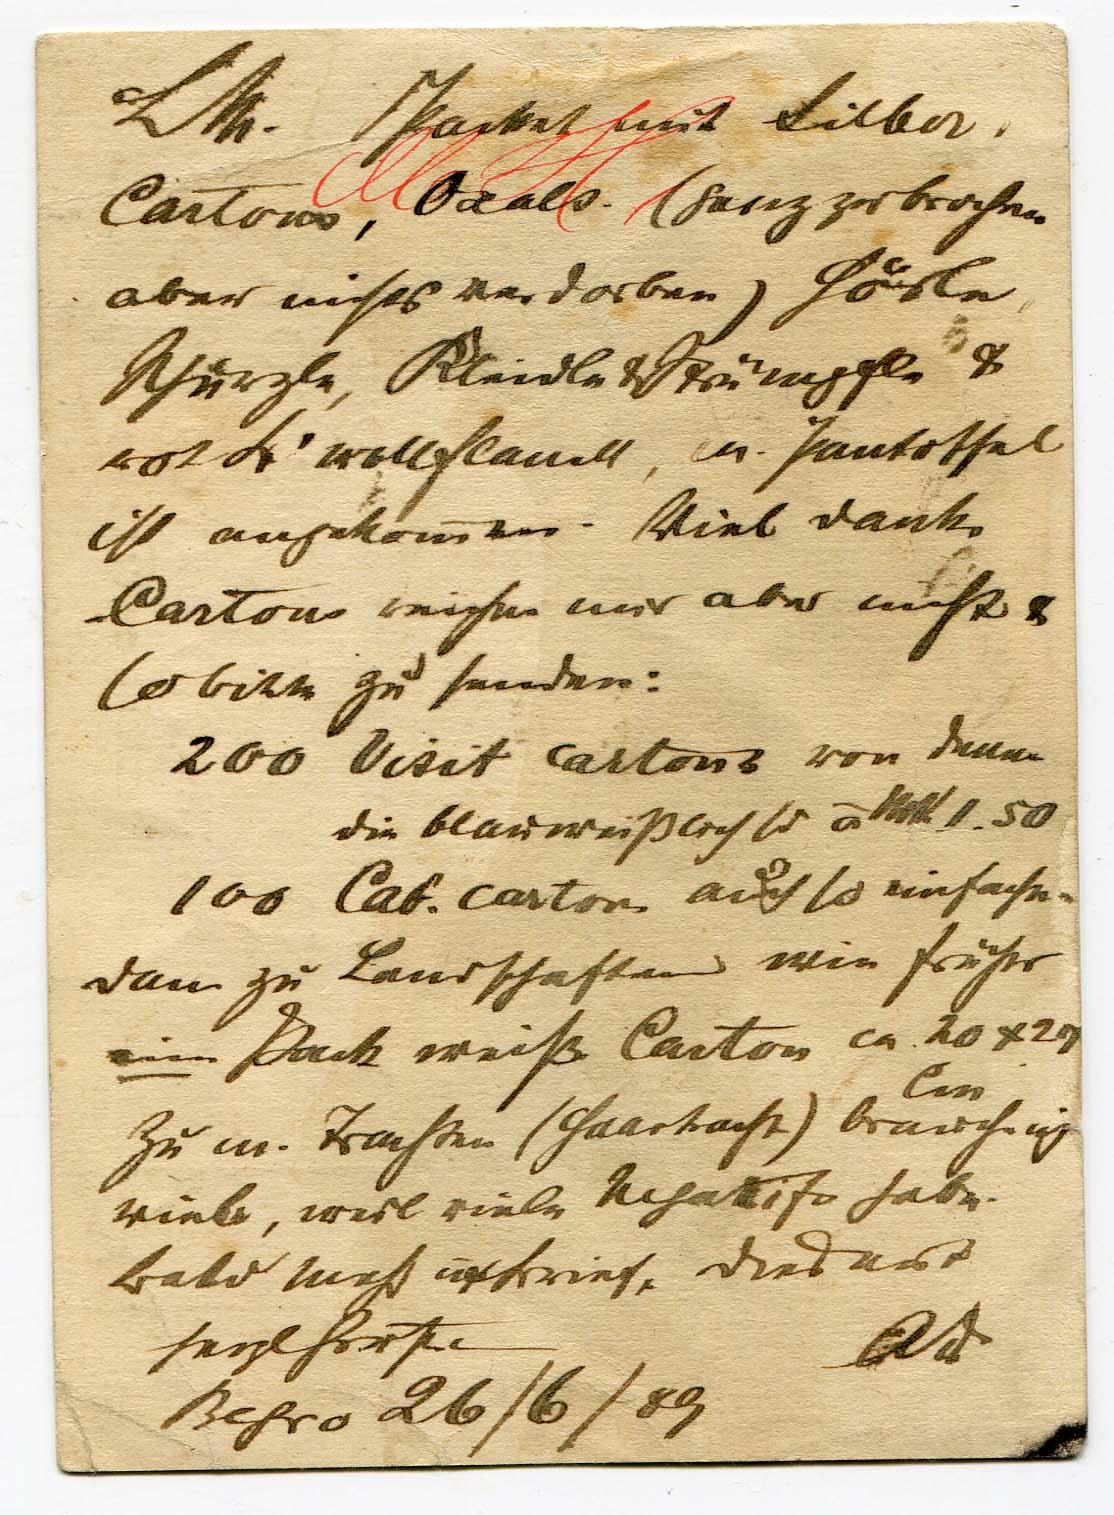 L M. Packet mit Silber,
Cartons, Oxals. (ganz zerbrochen
aber nichts verdorben) Hösle,
Schürzle, Kleidle & Strümpfle &
rot wollflanell, u. Pantoffel
ist angekom̄en. Viel dank.
Cartons reichen mir aber nicht &
so bitte zu senden:
200 Visit cartons von denen
die blauweißlich so à Mk 1.50
100 Cab. carton auch so einfache
dan zu Landschaften wie früher
ein Pack weiße Carton ca. 20 x 27
cm
zu m. Trachten (Haartracht) brauch ig
viele, weil viele Negatife habe.
bald mehr Brief. Dies nur
herzl Grüße Ad
26/6/89